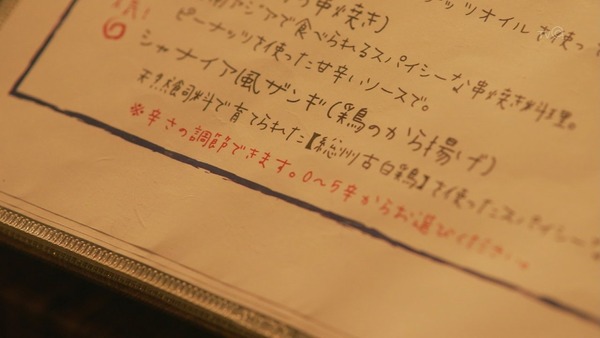 ナッツオイルを使っ
串焼き)
アジアで食べられるスパイシーな串焼き料理。
ピーナッツを使った甘辛いソースで。
シャナイア風ザンギ(鶏のから揚げ)
天然飼料で育てられた【総州古白鶏】を使ったスパイシーな
※辛さの調節できます。0〜5辛からお選びください。